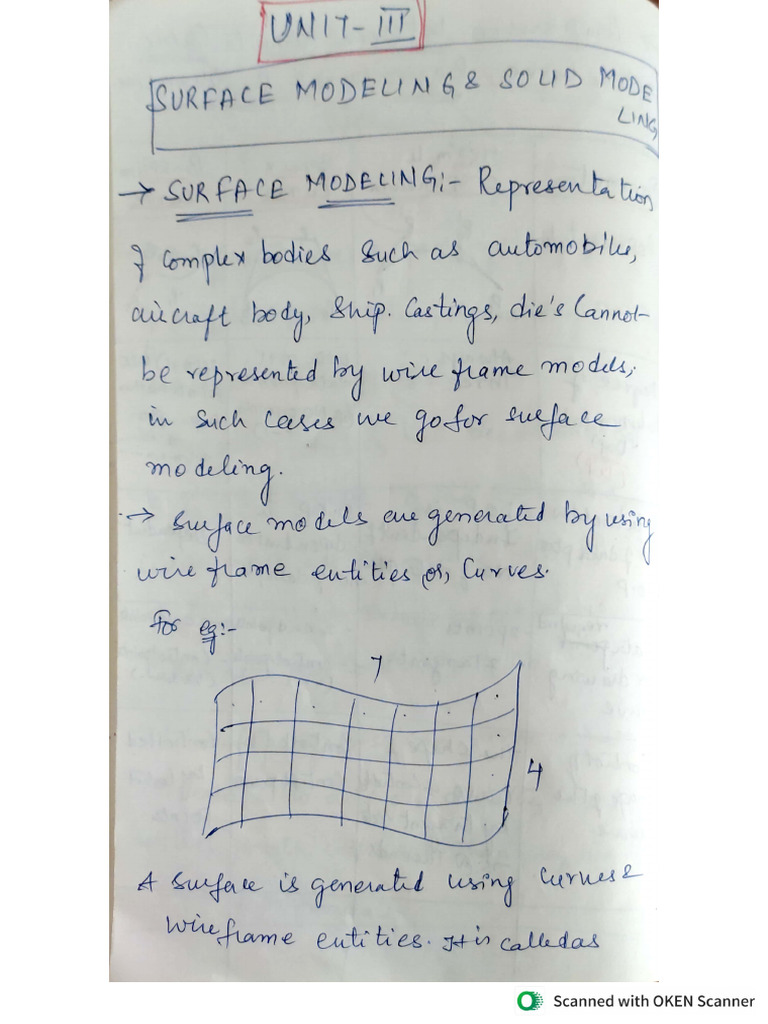 UNIT-III
SURFACE MODELING & SOLID MODE
LING
→ SURFACE MODELING:- Representation
of complex bodies such as automobiles,
aircraft body, ship. Castings, die's Cannot
be represented by wire frame models,
in such cases we go for surface
modeling.
→ Surface models are generated by using
wire frame entities (or) Curves.
For eg:-
7
4
A surface is generated using Curves &
wireframe entities. It is called as
Scanned with OKEN Scanner